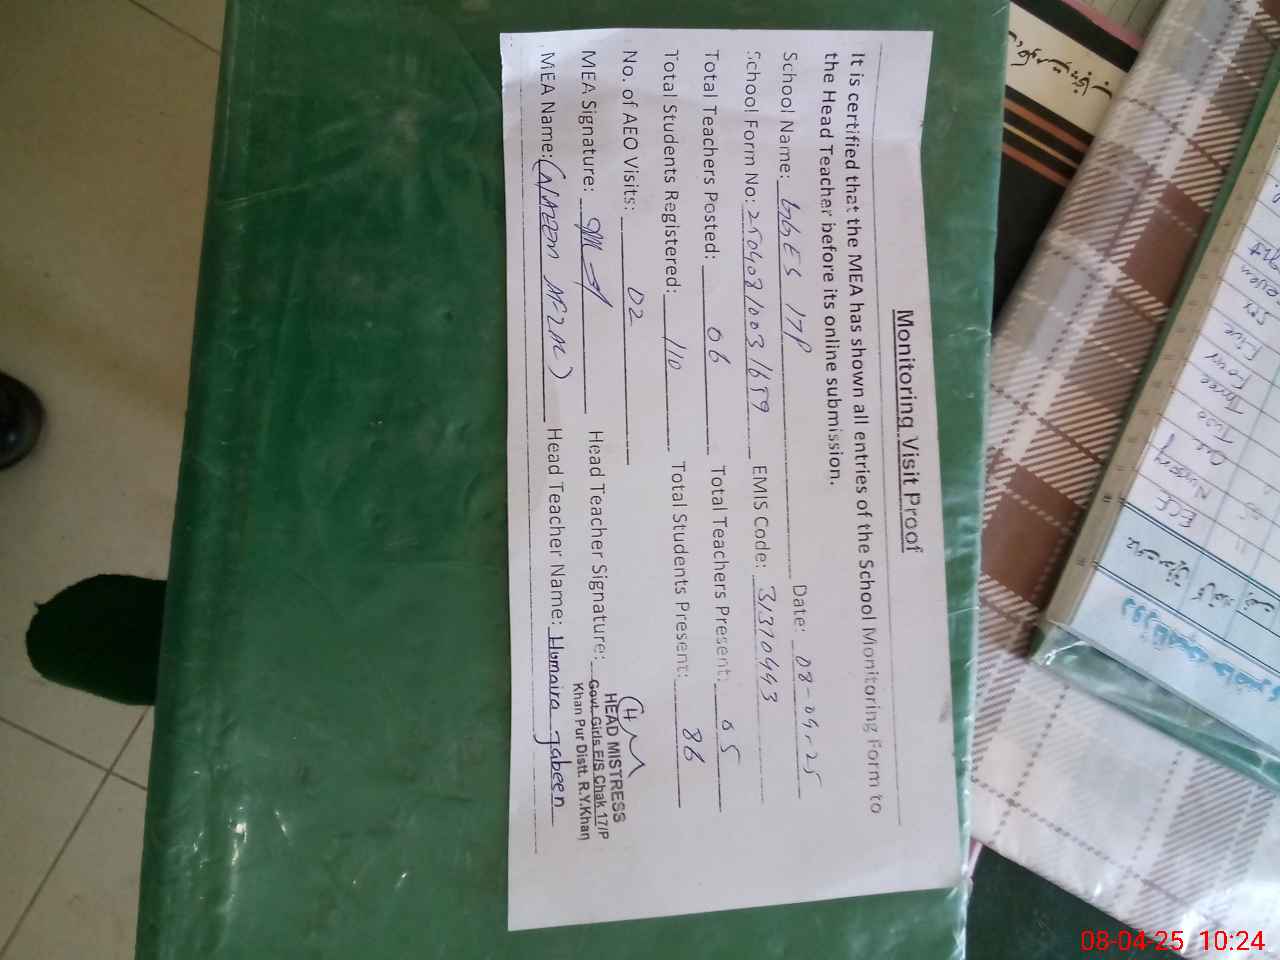 Monitoring Visit Proof
It is certified that the MEA has shown all entries of the School Monitoring Form to
the Head Teacher before its online submission.
School Name: GGES 17P Date: 08-04-25
School Form No: 250408/003/659 EMIS Code: 31310443
Total Teachers Posted: 06 Total Teachers Present: 05
Total Students Registered: 110 Total Students Present: 86
No. of AEO Visits: 02
MEA Signature: Head Teacher Signature:
HEAD MISTRESS
Govt. Girls E/S Chak 17/P
Khan Pur Distt. R.Y.Khan
MEA Name: (NAEEM AFZAL) Head Teacher Name: Humaira Jabeen
ECE
Nursery
One
Two
Three
Four
Five
Six
Seven
08-04-25 10:24